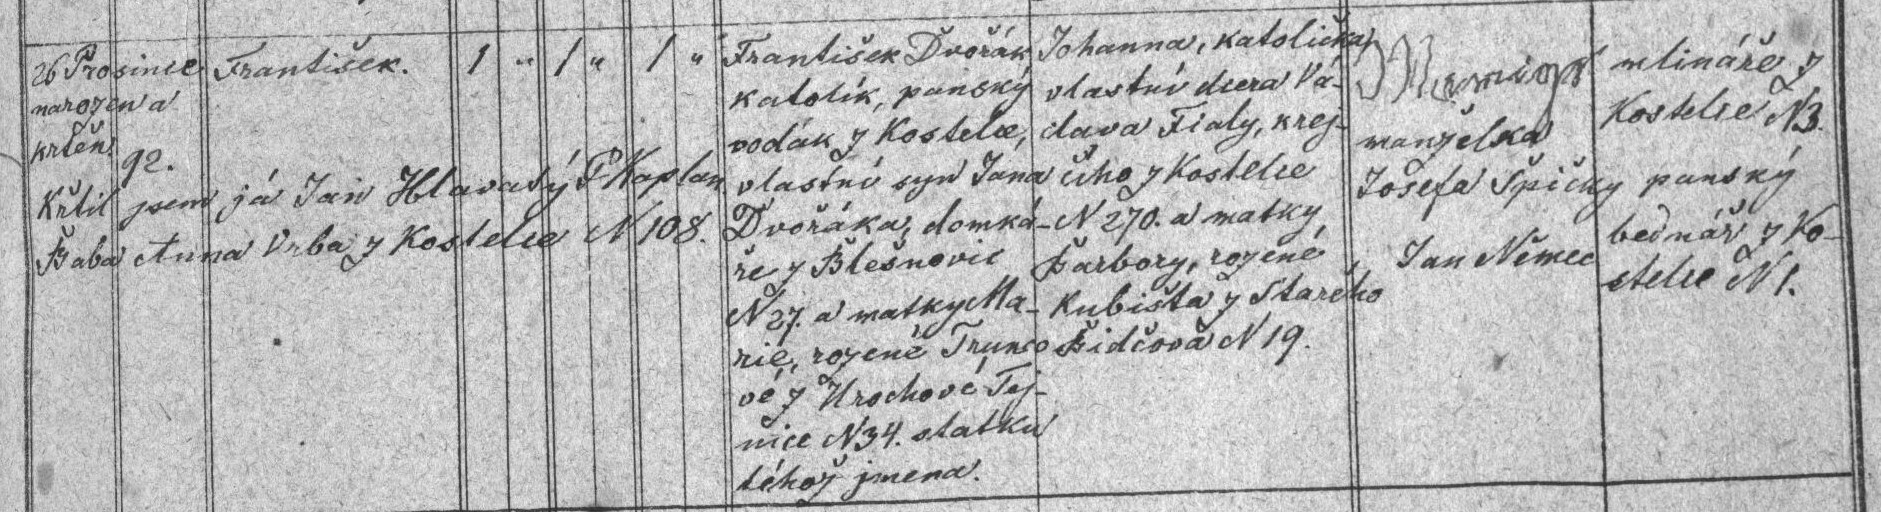 26 Prosince
narozen a
křtěn
92.
František.
1 " 1 " 1 "
Křtil jsem já Jan Hlavatý P Kaplan
Baba Anna Vrba z Kostelce N 108.
František Dvořák
katolík, panský
vodák z Kostelce,
vlastní syn Jana
Dvořáka, domká-
ře z Blešnovic
N 27. a matky Ma-
rie, rozené Trunco
vé z Hrochové Tej-
nice N 34. statku
téhož jmena.
Johanna, katolička,
vlastní dcera Vá-
clava Fialy, krej-
čího z Kostelce
N 270. a matky
Barbory, rozené
Kubišta z Starého
Bidčova N 19.
manželka
Josefa Špičky
Jan Němec
mlináře z
Kostelce N3.
panský
bednář z Ko-
stelce N 1.